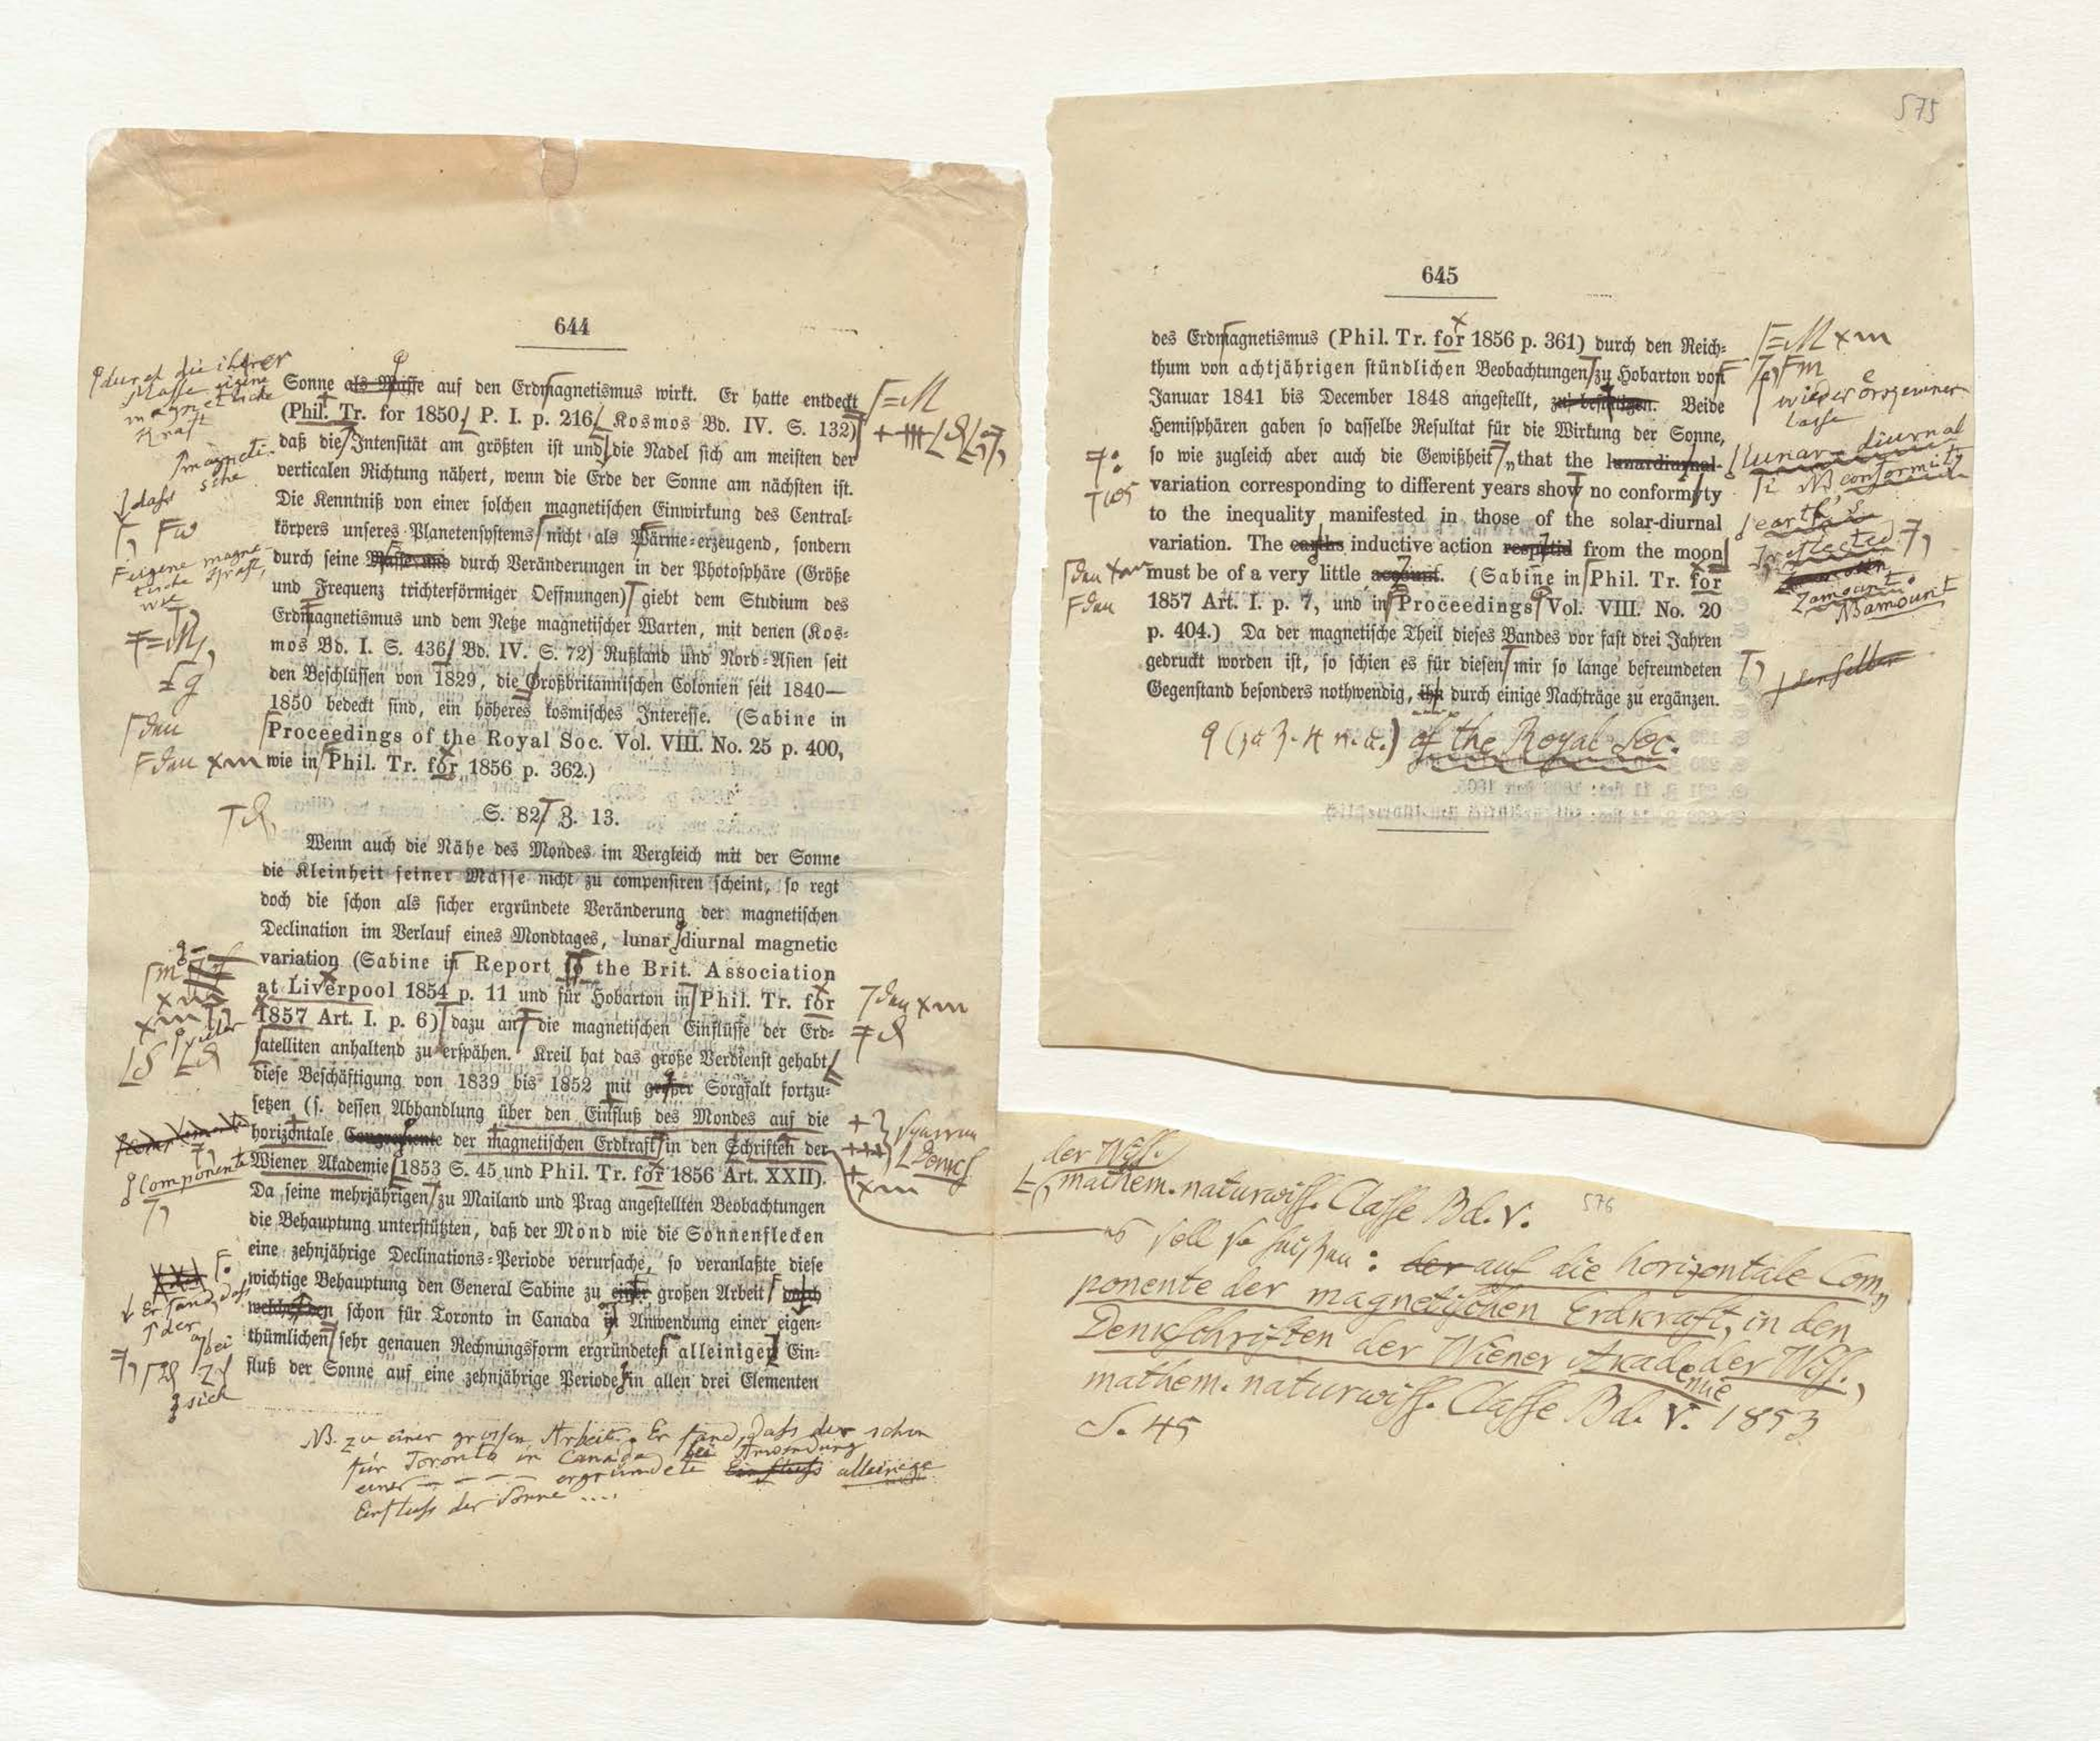 644
Sonne als Masse auf den Erdmagnetismus wirkt. Er hatte entdeckt
(Phil. Tr. for 1850, P. I. p. 216, Kosmos Bd. IV. S. 132)
daß die Intensität am größten ist und die Nadel sich am meisten der
verticalen Richtung nähert, wenn die Erde der Sonne am nächsten ist.
Die Kenntniß von einer solchen magnetischen Einwirkung des Central-
körpers unseres Planetensystems nicht als Wärme-erzeugend, sondern
durch seine Masse und durch Veränderungen in der Photosphäre (Größe
und Frequenz trichterförmiger Oeffnungen) giebt dem Studium des
Erdmagnetismus und dem Netze magnetischer Warten, mit denen (Kos-
mos Bd. I. S. 436, Bd. IV. S. 72) Rußland und Nord-Asien seit
den Beschlüssen von 1829, die Großbritannischen Colonien seit 1840—
1850 bedeckt sind, ein höheres kosmisches Interesse. (Sabine in
Proceedings of the Royal Soc. Vol. VIII. No. 25 p. 400,
wie in Phil. Tr. for 1856 p. 362.)
S. 82 Z. 13.
Wenn auch die Nähe des Mondes im Vergleich mit der Sonne
die Kleinheit seiner Masse nicht zu compensiren scheint, so regt
doch die schon als sicher ergründete Veränderung der magnetischen
Declination im Verlauf eines Mondtages, lunar diurnal magnetic
variation (Sabine in Report to the Brit. Association
at Liverpool 1854 p. 11 und für Hobarton in Phil. Tr. for
1857 Art. I. p. 6) dazu an die magnetischen Einflüsse der Erd-
satelliten anhaltend zu erspähen. Kreil hat das große Verdienst gehabt
diese Beschäftigung von 1839 bis 1852 mit großer Sorgfalt fortzu-
setzen (s. dessen Abhandlung über den Einfluß des Mondes auf die
horizontale der magnetischen Erdkraft in den Schriften der
Wiener Akademie 1853 S. 45 und Phil. Tr. for 1856 Art. XXII).
Da seine mehrjährigen zu Mailand und Prag angestellten Beobachtungen
die Behauptung unterstützten, daß der Mond wie die Sonnenflecken
eine zehnjährige Declinations-Periode verursache, so veranlaßte diese
wichtige Behauptung den General Sabine zu einer großen Arbeit durch
schon für Toronto in Canada in Anwendung einer eigen-
thümlichen sehr genauen Rechnungsform ergründeten alleinigen Ein-
fluß der Sonne auf eine zehnjährige Periode in allen drei Elementen
durch die ihrer
Masse eigene
magnetische
Kraft
magneti-
sche
dass
eigene magne-
tische Kraft,
wie
den
den
Componente
Er fand, dass
der
bei
sich
den
Denksch
NB. zu einer grossen Arbeit. Er fand, dass der schon
für Toronto in Canada bei Anwendung
einer – – – – ergründete Einfluss alleinige
Einfluss der Sonne ....
575
645
des Erdmagnetismus (Phil. Tr. for 1856 p. 361) durch den Reich-
thum von achtjährigen stündlichen Beobachtungen zu Hobarton von
Januar 1841 bis December 1848 angestellt, zu bestätigen. Beide
Hemisphären gaben so dasselbe Resultat für die Wirkung der Sonne,
so wie zugleich aber auch die Gewißheit „that the lunardiurnal-
variation corresponding to different years show no conformyty
to the inequality manifested in those of the solar-diurnal
variation. The earths inductive action from the moon
must be of a very little account. (Sabine in Phil. Tr. for
1857 Art. I. p. 7, und in Proceedings Vol. VIII. No. 20
p. 404.) Da der magnetische Theil dieses Bandes vor fast drei Jahren
gedruckt worden ist, so schien es für diesen mir so lange befreundeten
Gegenstand besonders nothwendig, ihn durch einige Nachträge zu ergänzen.
lunar-diurnal
NB conformity
earth's
reflected
amount.
NB amount
denselben
den
den
of the Royal Soc.
576
der Wiss.
mathem. naturwiss. Classe Bd. V.
soll so heißen: der auf die horizontale Com-
ponente der magnetischen Erdkraft, in den
Denkschriften der Wiener Akademie der Wiss.,
mathem. naturwiss. Classe Bd. V. 1853
S. 45